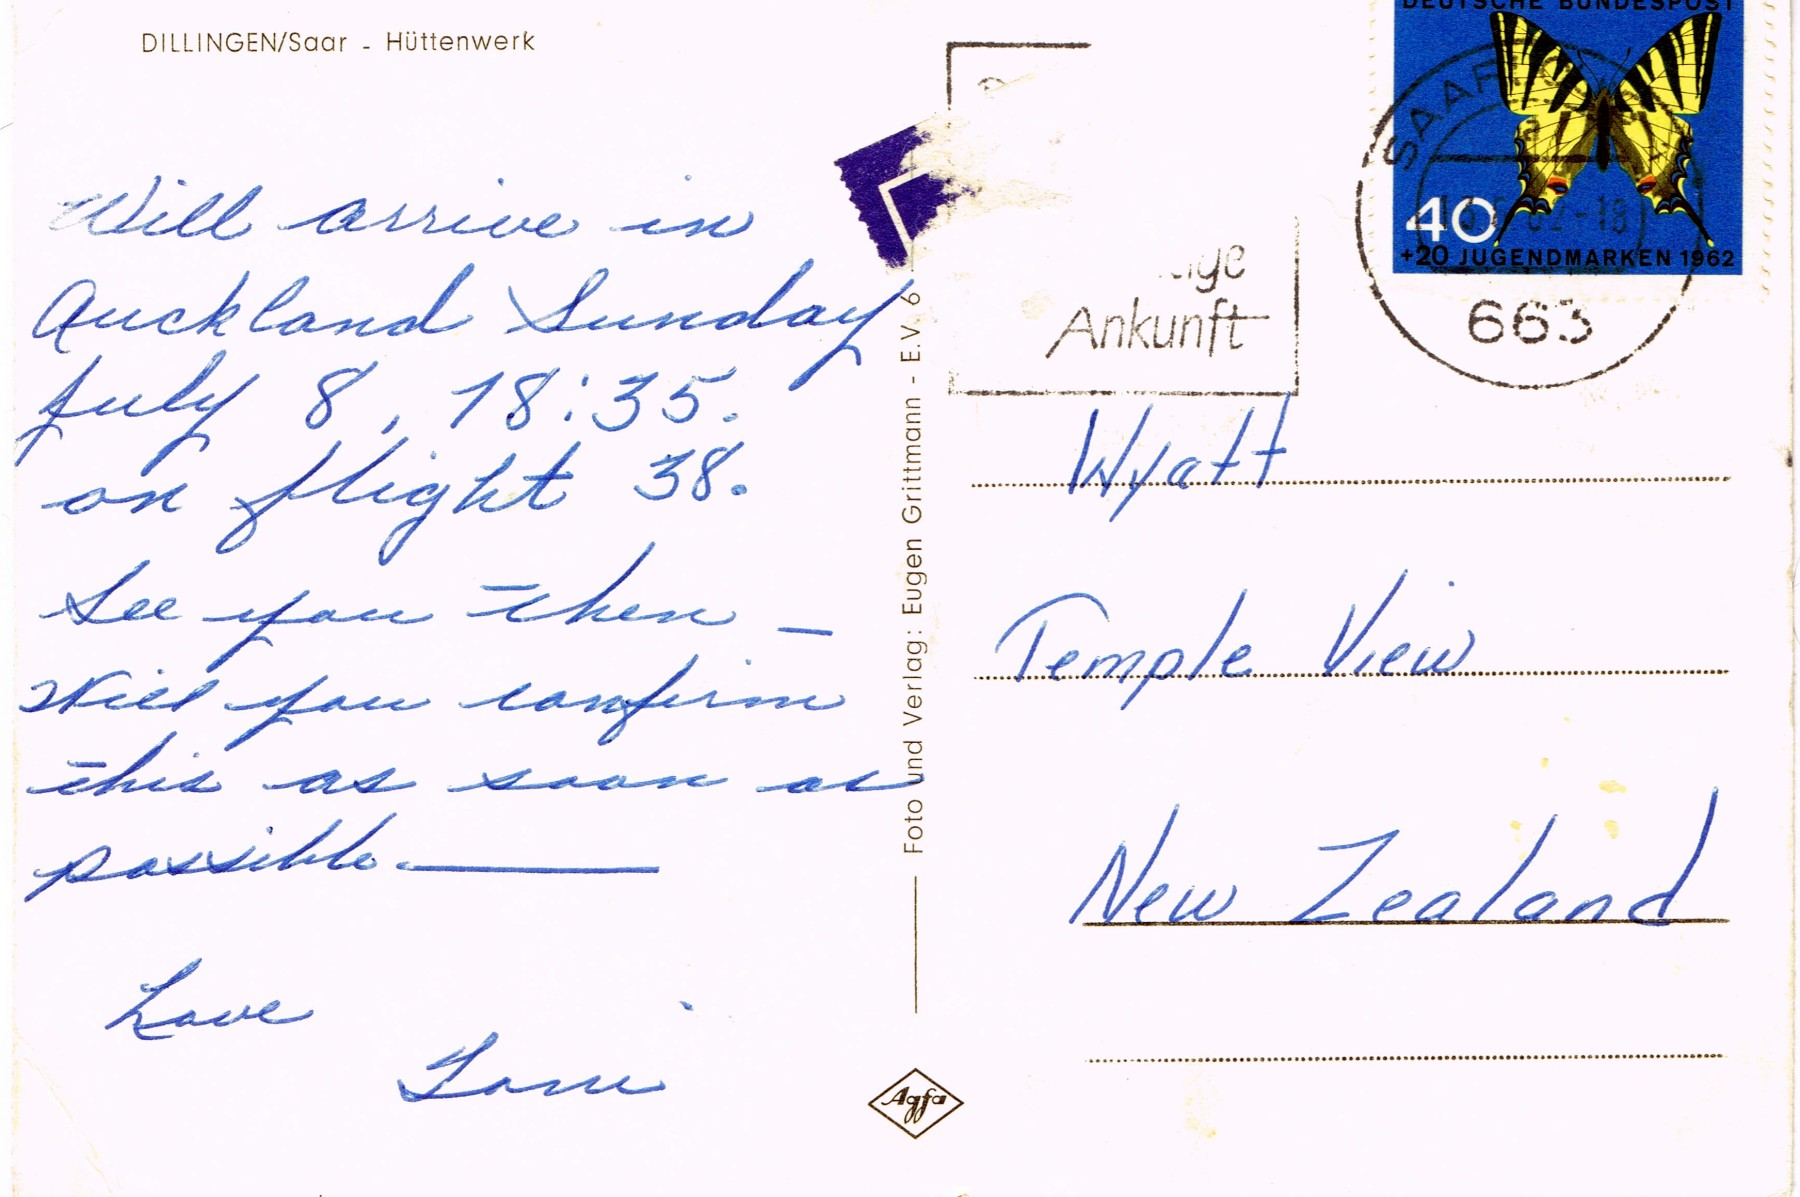 DILLINGEN/Saar - Hüttenwerk
Will arrive in
Auckland Sunday
July 8, 18:35.
on flight 38.
See you then —
Will you confirm
this as soon as
possible —
Love
Foto und Verlag: Eugen Grittmann - E.V. 6
Agfa
Ankunft
DEUTSCHE BUNDESPOST
40
+20 JUGENDMARKEN 1962
663
Wyatt
Temple View
New Zealand